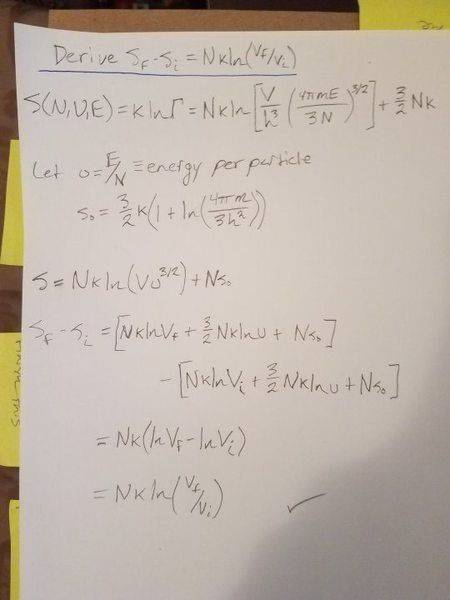 Derive S_f - S_i = Nk ln(V_f/V_i)
S(N,V,E) = k ln Γ = Nk ln[V/h³ (4πmE/3N)^3/2] + 3/2 Nk
Let u = E/N ≡ energy per particle
s₀ = 3/2 k(1 + ln(4πm/3h²))
S = Nk ln(Vu^3/2) + Ns₀
S_f - S_i = [Nk ln V_f + 3/2 Nk ln u + Ns₀]
- [Nk ln V_i + 3/2 Nk ln u + Ns₀]
= Nk(ln V_f - ln V_i)
= Nk ln(V_f/V_i) ✓